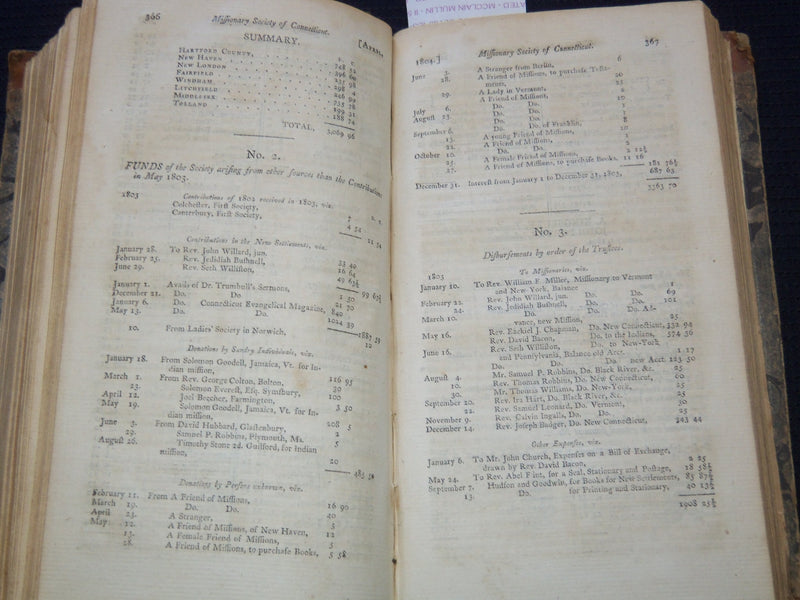 366
Missionary Society of Connecticut.
[APRIL,
SUMMARY.
HARTFORD COUNTY,
D. C.
NEW HAVEN 748 52
NEW LONDON 296 60
FAIRFIELD
WINDHAM, 298 4
LITCHFIELD
MIDDLESEX
TOLLAND 188 74
TOTAL, 3,069 96
No. 2.
FUNDS of the Society arising from other sources than the Contributions
in May 1803.
1803 Contributions of 1802 received in 1803, viz.
D. C.
Colchester, First Society, 7
Canterbury, First Society, 4 54
11 54
Contributions in the New Settlements, viz.
January 28. To Rev. John Willard, jun. 33 40
February 25. Rev. Jedidiah Bushnell, 16 64
June 29. Rev. Seth Williston, 49 63½
99 67½
January 1. Avails of Dr. Trumbull's Sermons, 1 50
December 21. Do. Do 21 70
January 6. Do. Connecticut Evangelical Magazine, 840
May 13. Do. Do. 1024 39
1887 59
10. From Ladies' Society in Norwich, 10
Donations by Sundry Individuals, viz.
January 18. From Solomon Goodell, Jamaica, Vt. for In-
dian mission, 116 95
March 1. From Rev. George Colton, Bolton, 20
23. Solomon Everest, Esq. Symsbury, 100
April 12. Joel Beecher, Farmington, 3 50
May 19. Solomon Goodell, Jamaica, Vt. for In-
dian mission, 208 5
June 3. From David Hubbard, Glastenbury, 2
29. Samuel P. Robbins, Plymouth, Ms. 5
August 26. Timothy Stone 2d. Guilford, for Indian
mission, 20
485 50
Donations by Persons unknown, viz.
February 11. From A Friend of Missions, 16 90
March 19. Do. Do. 40
April 23. A Stranger, 5
May 12. A Friend of Missions, of New Haven, 12
13. A Female Friend of Missions, 5
28. A Friend of Missions, to purchase Books, 5 58
ATED - MCCLAIN MULLIN
1804.]
Missionary Society of Connecticut.
367
June 3. A Stranger from Berlin, 6
28. A Friend of Missions, to purchase Testa-
ments, 20
29. A Lady in Vermont, 25
A Friend of Missions, 2
July 6. Do. Do. 10
August 23. Do. Do. 1
Do. Do. 7
September 6. Do. Do. of Franklin, 8
13. A young Friend of Missions, 10
22. A Friend of Missions, 1
October 10. Do. Do. 2
25. A Female Friend of Missions, 2 12½
27. A Friend of Missions, to purchase Books, 11 16
181 76½
December 31. Interest from January 1 to December 31, 1803, 687 63
3363 70
No. 3.
Disbursements by order of the Trustees.
1803 To Missionaries, viz.
January 10. To Rev. William F. Miller, Missionary to Vermont
and New-York, Balance 1
February 22. Rev. John Willard, jun. Do. Do. 69
24. Rev. Jedidiah Bushnell, Do. Do. 101
March 10. Do. Do. Do. Ad-
vance, new Mission, 25
May 16. Rev. Ezekiel J. Chapman, Do. New Connecticut, 332 94
Rev. David Bacon, Do. to the Indians, 574 36
June 16. Rev. Seth Williston, Do. to New-York
and Pennsylvania, Balance old Acct. 1 17
Do. Do. Do. new Acct. 123 50
August 4. Mr. Samuel P. Robbins, Do. Black River, &c. 25
10. Rev. Thomas Robbins, Do. New Connecticut, 60
30. Mr. Thomas Williams, Do. New-York, 25
September 20. Rev. Ira Hart, Do. Black River, &c. 25
22. Rev. Samuel Leonard, Do. Vermont, 30
November 9. Rev. Calvin Ingalls, Do. Do. 25
December 14. Rev. Joseph Badger, Do. New Connecticut, 243 44
Other Expenses, viz.
January 6. To Mr. John Church, Expenses on a Bill of Exchange,
drawn by Rev. David Bacon, 2 25
May 24. To Rev. Abel Flint, for a Seal, Stationary and Postage, 18 58½
September 7. Hudson and Goodwin, for Books for New Settlements, 85 87½
13. Do. for Printing and Stationary, 40 13½
1908 25½